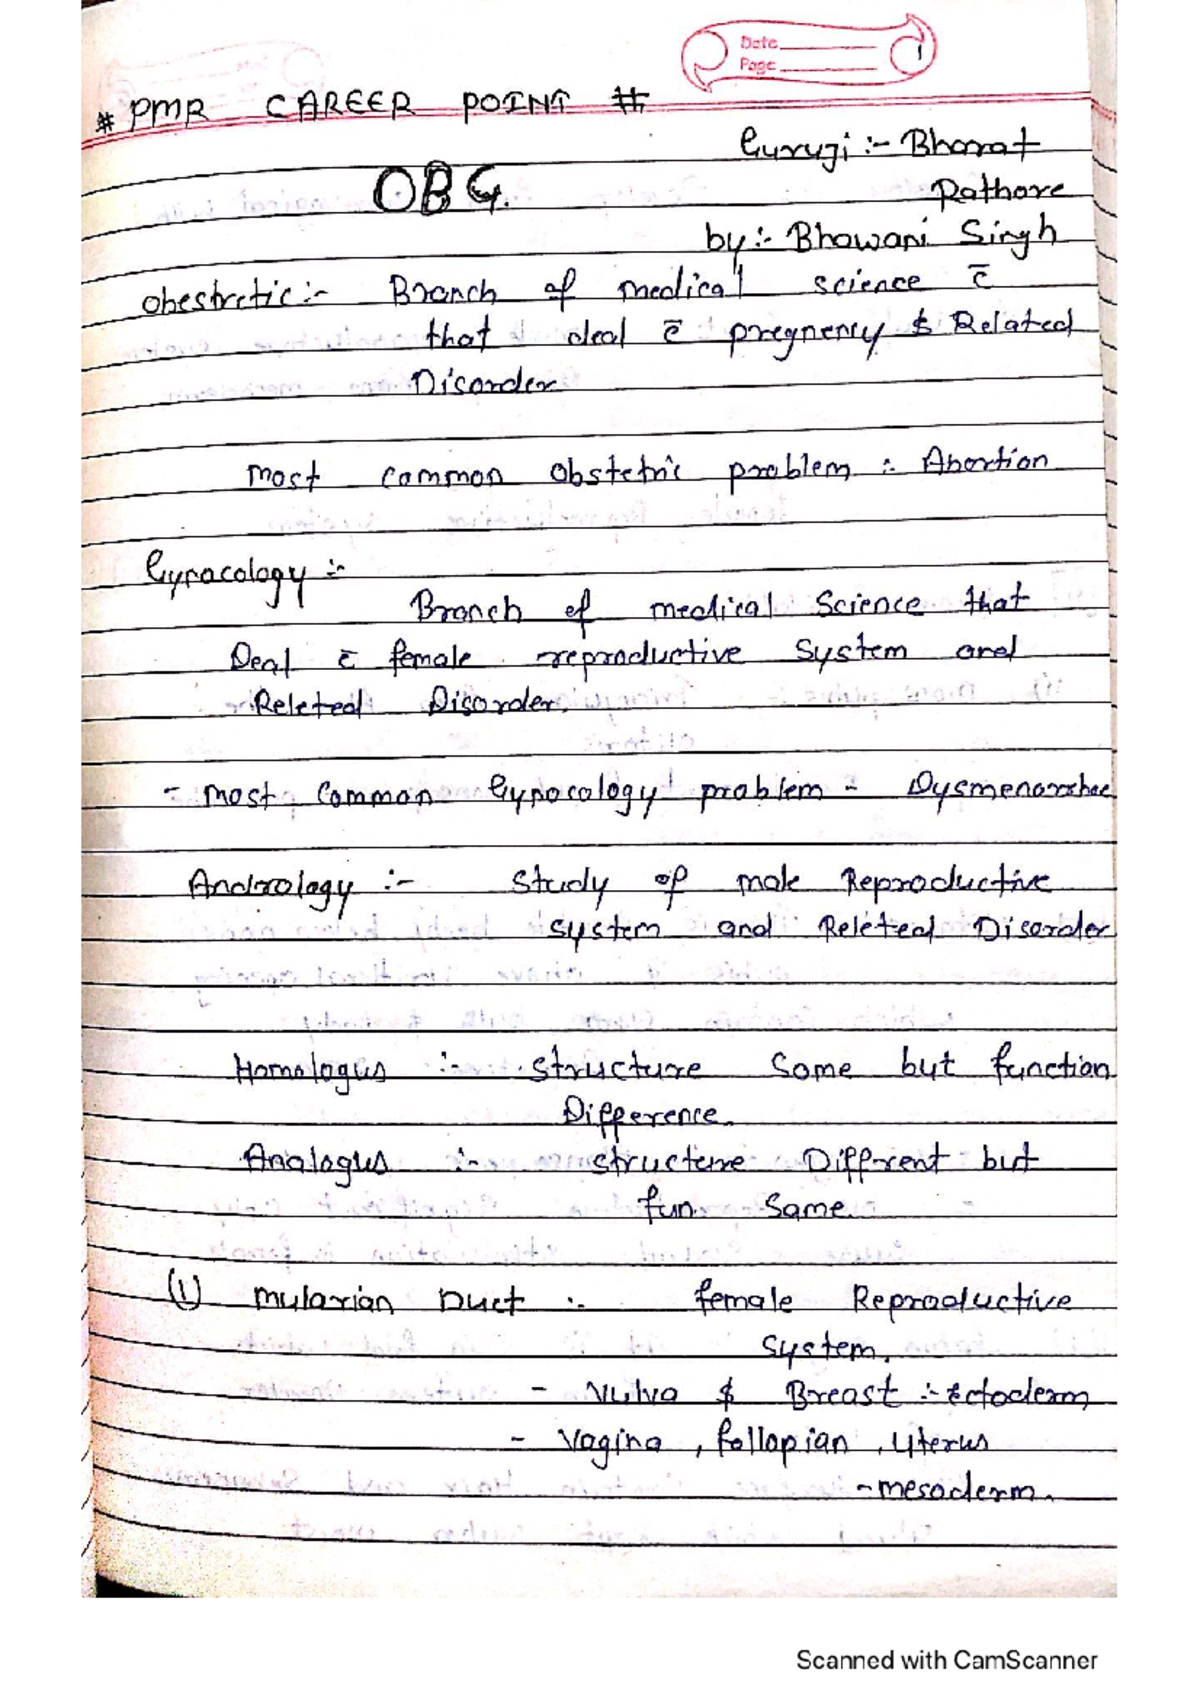 Date
Page 1
# PMR CAREER POINT #
Guruji :- Bharat
Rathore
OBG.
by :- Bhawani Singh
Obestretic :- Branch of medical science c̄
that deal c̄ pregnency & Related
Disorder
most common obstetric problem :- Abortion
Gynocology :-
Branch of medical Science that
Deal c̄ female reproductive System and
Releted Disorder.
- most common Gynocology problem - Dysmenorrhee
Andrology :- Study of male Reproductive
system and Releted Disorder
Homologus :- structure Same but function
Difference.
Analogus :- structure Different but
fun. Same.
(1) mularian Duct :- female Reproductive
System.
- Vulva & Breast :- Ectoderm
- Vagina , fallopian , uterus
- mesoderm.
Scanned with CamScanner